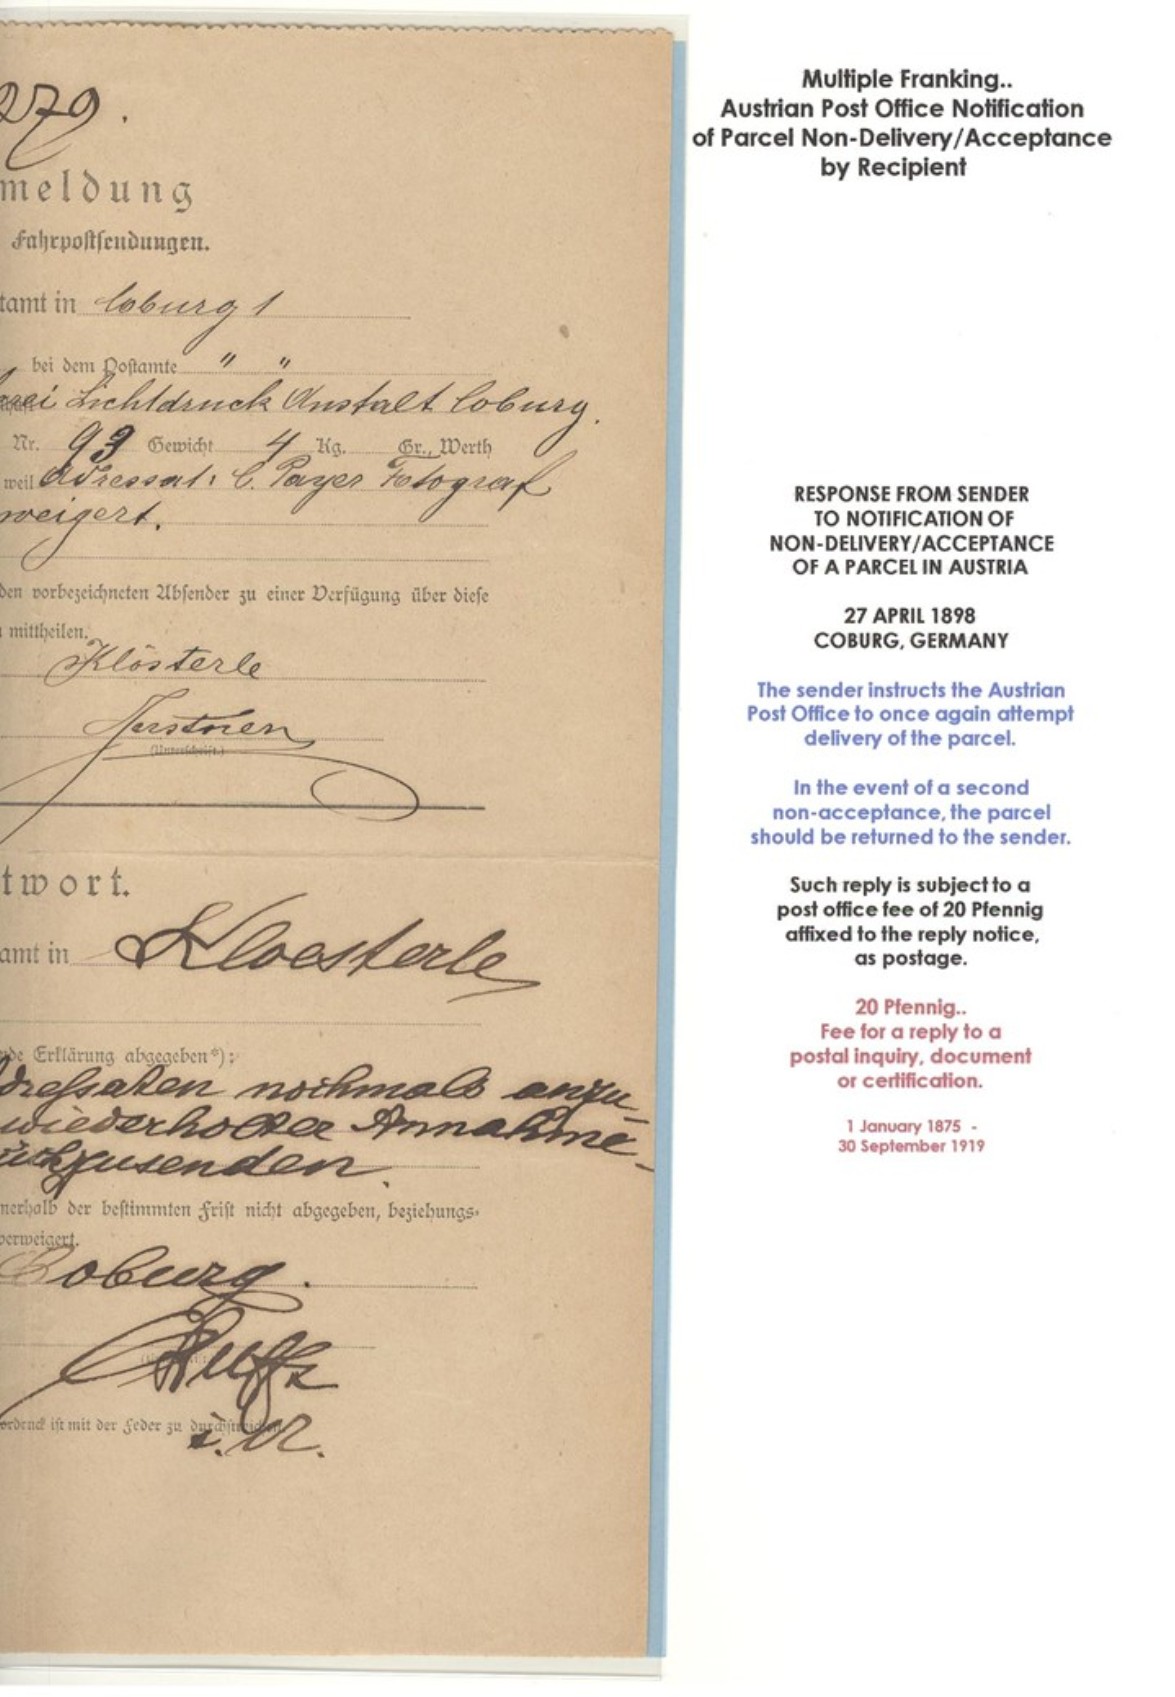 279.
meldung
Fahrpostsendungen.
tamt in Coburg 1
bei dem Postamte " "
Lichtdruck Anstalt Coburg.
Nr. 93 Gewicht 4 Kg. Gr., Werth
weil Adressat: C. Payer Fotograf
weigert.
den vorbezeichneten Absender zu einer Verfügung über diese
mittheilen.
Klösterle
(Unterschrift.)
twort.
amt in Kloesterle
nde Erklärung abgegeben*):
dressaten nochmals anzu-
wiederholter Annahme-
ückzusenden.
nerhalb der bestimmten Frist nicht abgegeben, beziehungs-
verweigert.
Coburg.
i.V.
ordruck ist mit der Feder zu durchstreichen.
Multiple Franking..
Austrian Post Office Notification
of Parcel Non-Delivery/Acceptance
by Recipient
RESPONSE FROM SENDER
TO NOTIFICATION OF
NON-DELIVERY/ACCEPTANCE
OF A PARCEL IN AUSTRIA
27 APRIL 1898
COBURG, GERMANY
The sender instructs the Austrian
Post Office to once again attempt
delivery of the parcel.
In the event of a second
non-acceptance, the parcel
should be returned to the sender.
Such reply is subject to a
post office fee of 20 Pfennig
affixed to the reply notice,
as postage.
20 Pfennig..
Fee for a reply to a
postal inquiry, document
or certification.
1 January 1875 -
30 September 1919